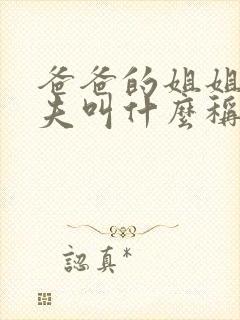 爸爸的姐姐
夫叫什麼稱
認真*